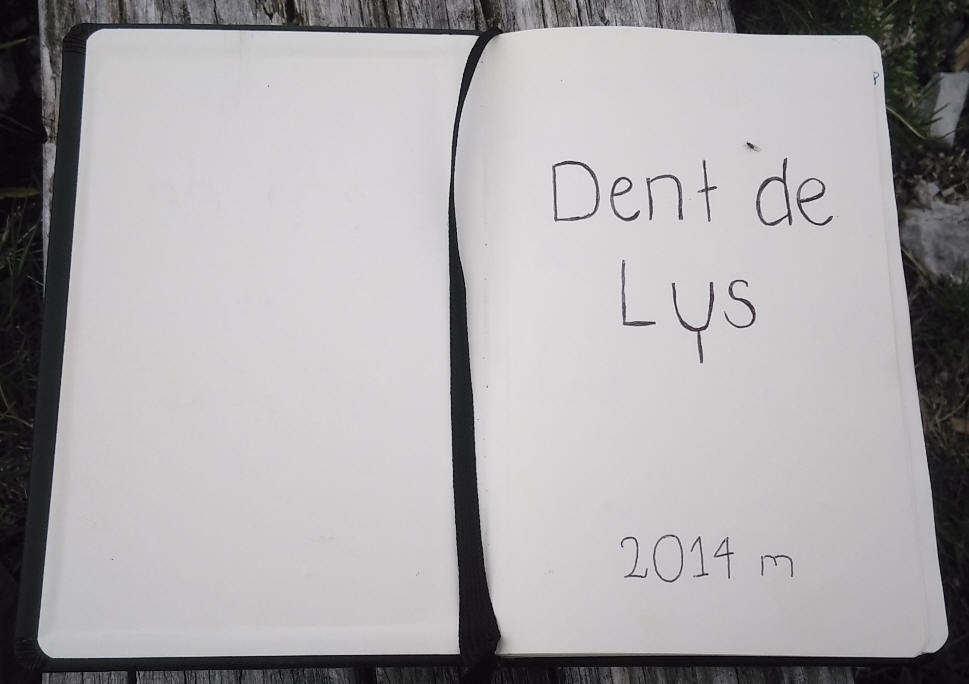 Dent de
Lys
2014 m